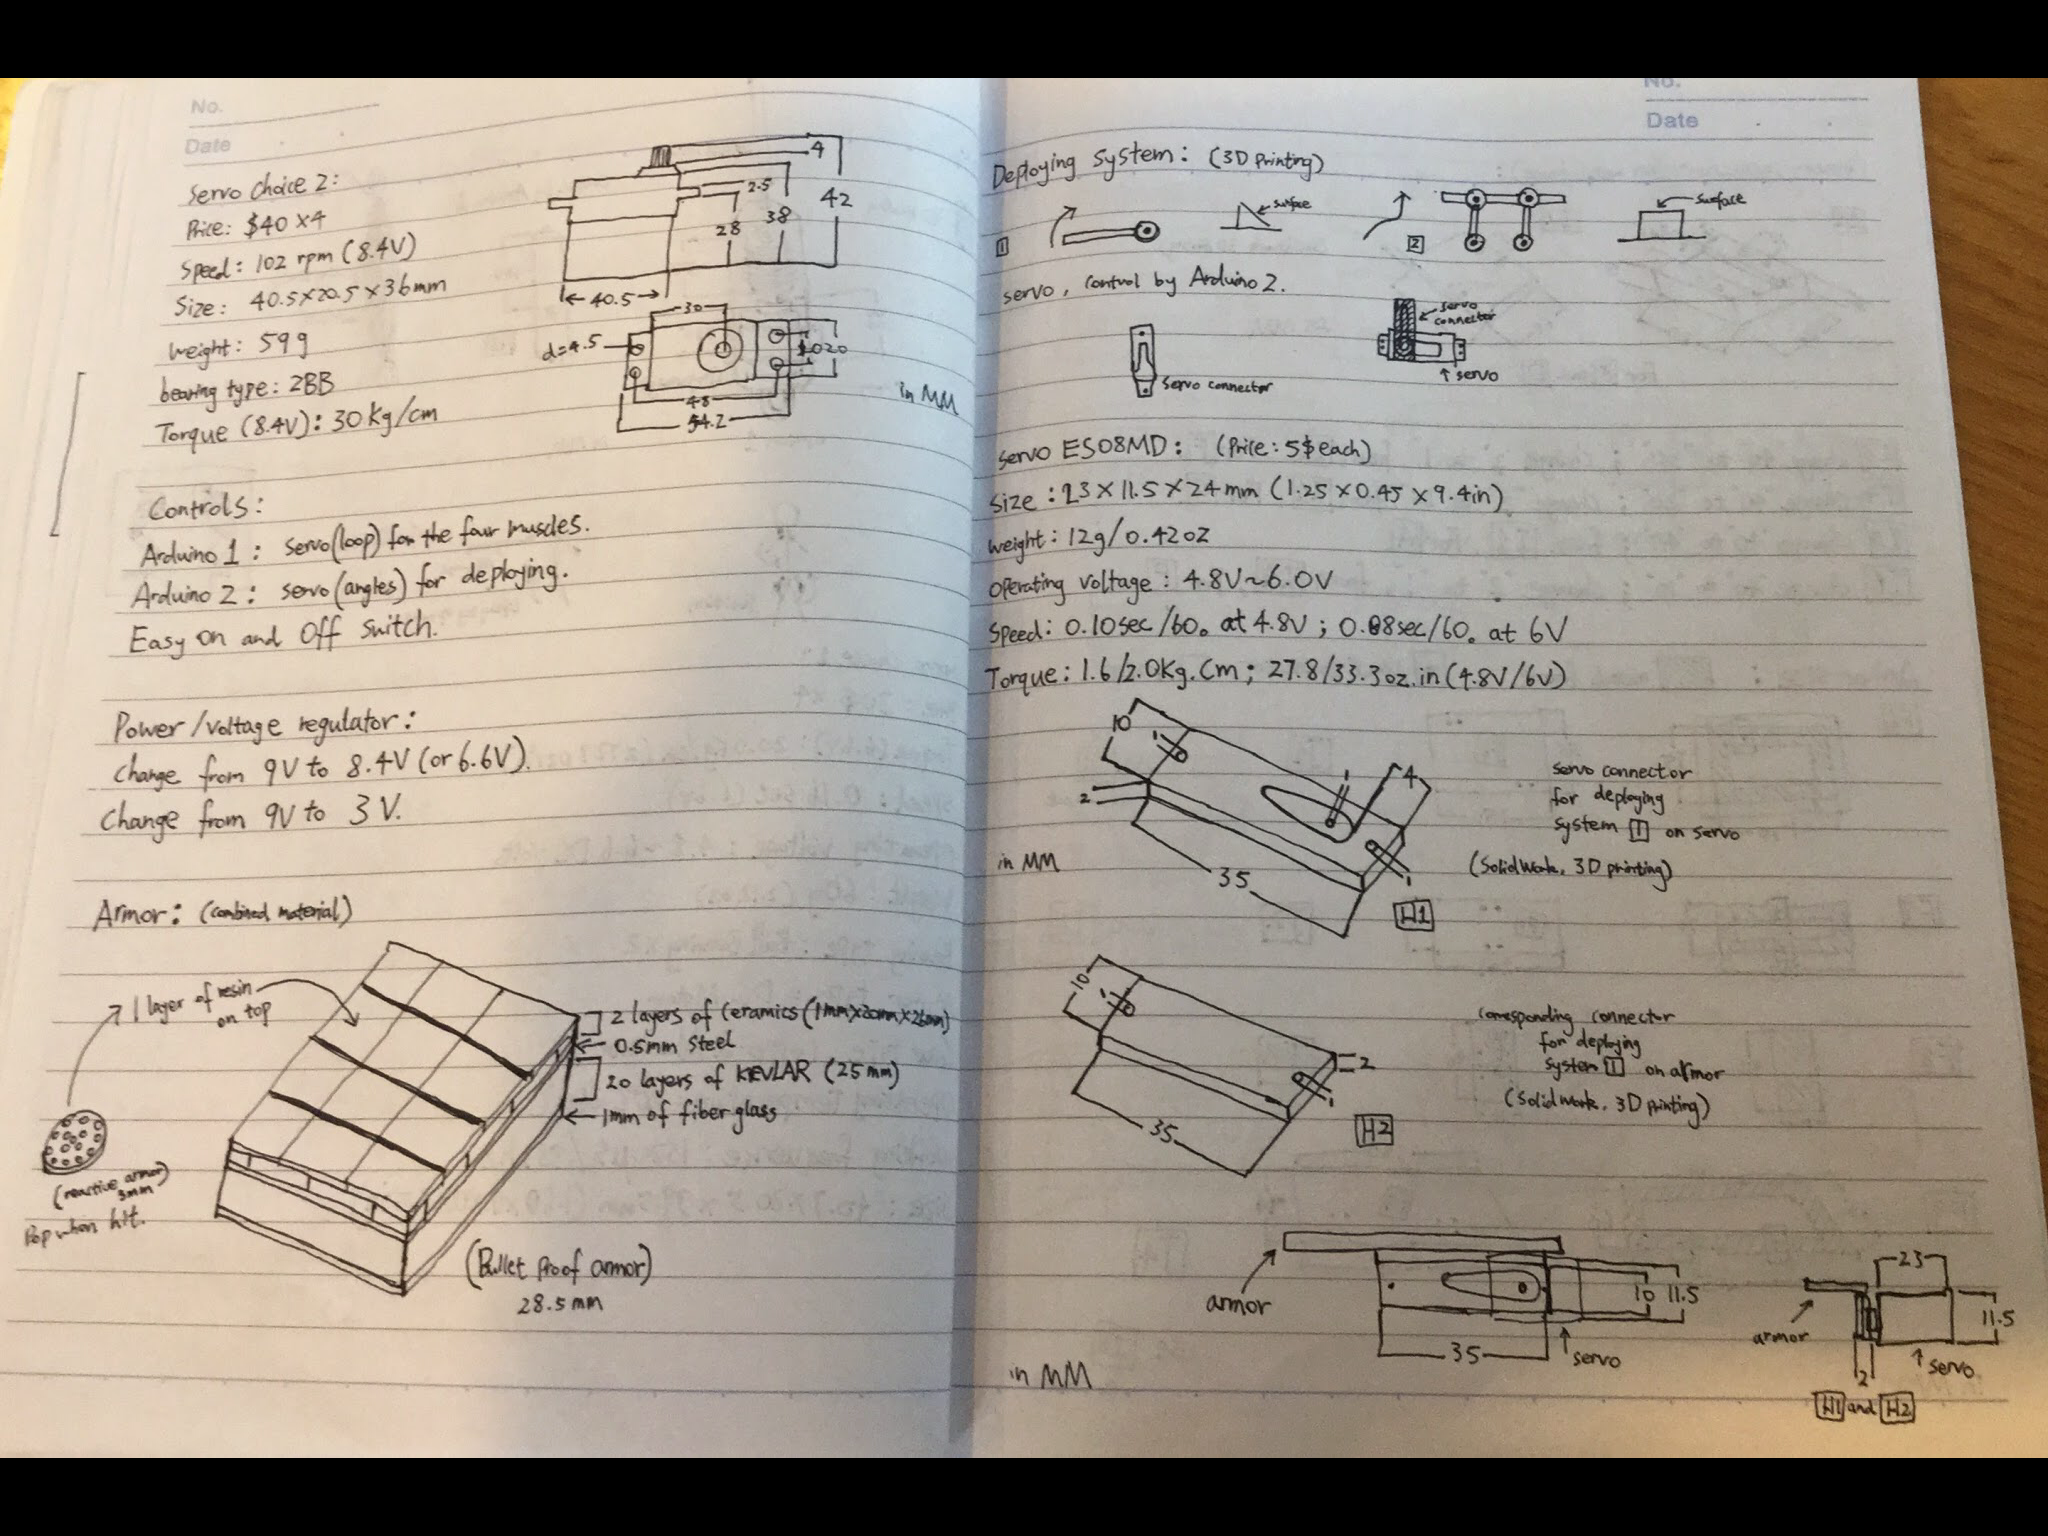 No.
Date
Servo Choice 2:
Price: $40 x4
Speed: 102 rpm (8.4V)
Size: 40.5x20.5x36mm
Weight: 59g
bearing type: 2BB
Torque (8.4V): 30Kg/cm
4
2.5
28
38
42
40.5
30
d=4.5
1020
48
54.2
in MM
Controls:
Arduino 1: servo(loop) for the four muscles.
Arduino 2: servo(angles) for deploying.
Easy on and Off switch.
Power/voltage regulator:
Change from 9V to 8.4V (or 6.6V).
Change from 9V to 3V.
Armor: (combined material)
1 layer of resin
on top
2 layers of ceramics (1mm x20mm x26mm)
0.5mm steel
20 layers of KEVLAR (25mm)
1mm of fiber glass
(reactive armor)
3mm
Pop when hit.
(Bullet Proof armor)
28.5mm
No.
Date
Deploying system: (3D Printing)
1
surface
2
surface
servo, control by Arduino 2.
servo connector
servo
connector
servo
servo ES08MD: (Price: 5$ each)
Size: 23 x 11.5 x 24mm (1.25 x 0.45 x 9.4in)
Weight: 12g/0.42oz
Operating voltage: 4.8V~6.0V
Speed: 0.10sec/60° at 4.8V; 0.08sec/60° at 6V
Torque: 1.6/2.0Kg.Cm; 27.8/33.3oz.in (4.8V/6V)
10
1
2
1
4
1
35
in MM
H1
servo connector
for deploying
system 1 on servo
(Solidwork, 3D printing)
10
1
2
1
35
H2
corresponding connector
for deploying
system 1 on armor
(Solidwork, 3D printing)
armor
10
11.5
35
servo
in MM
23
11.5
armor
servo
2
H1 and H2